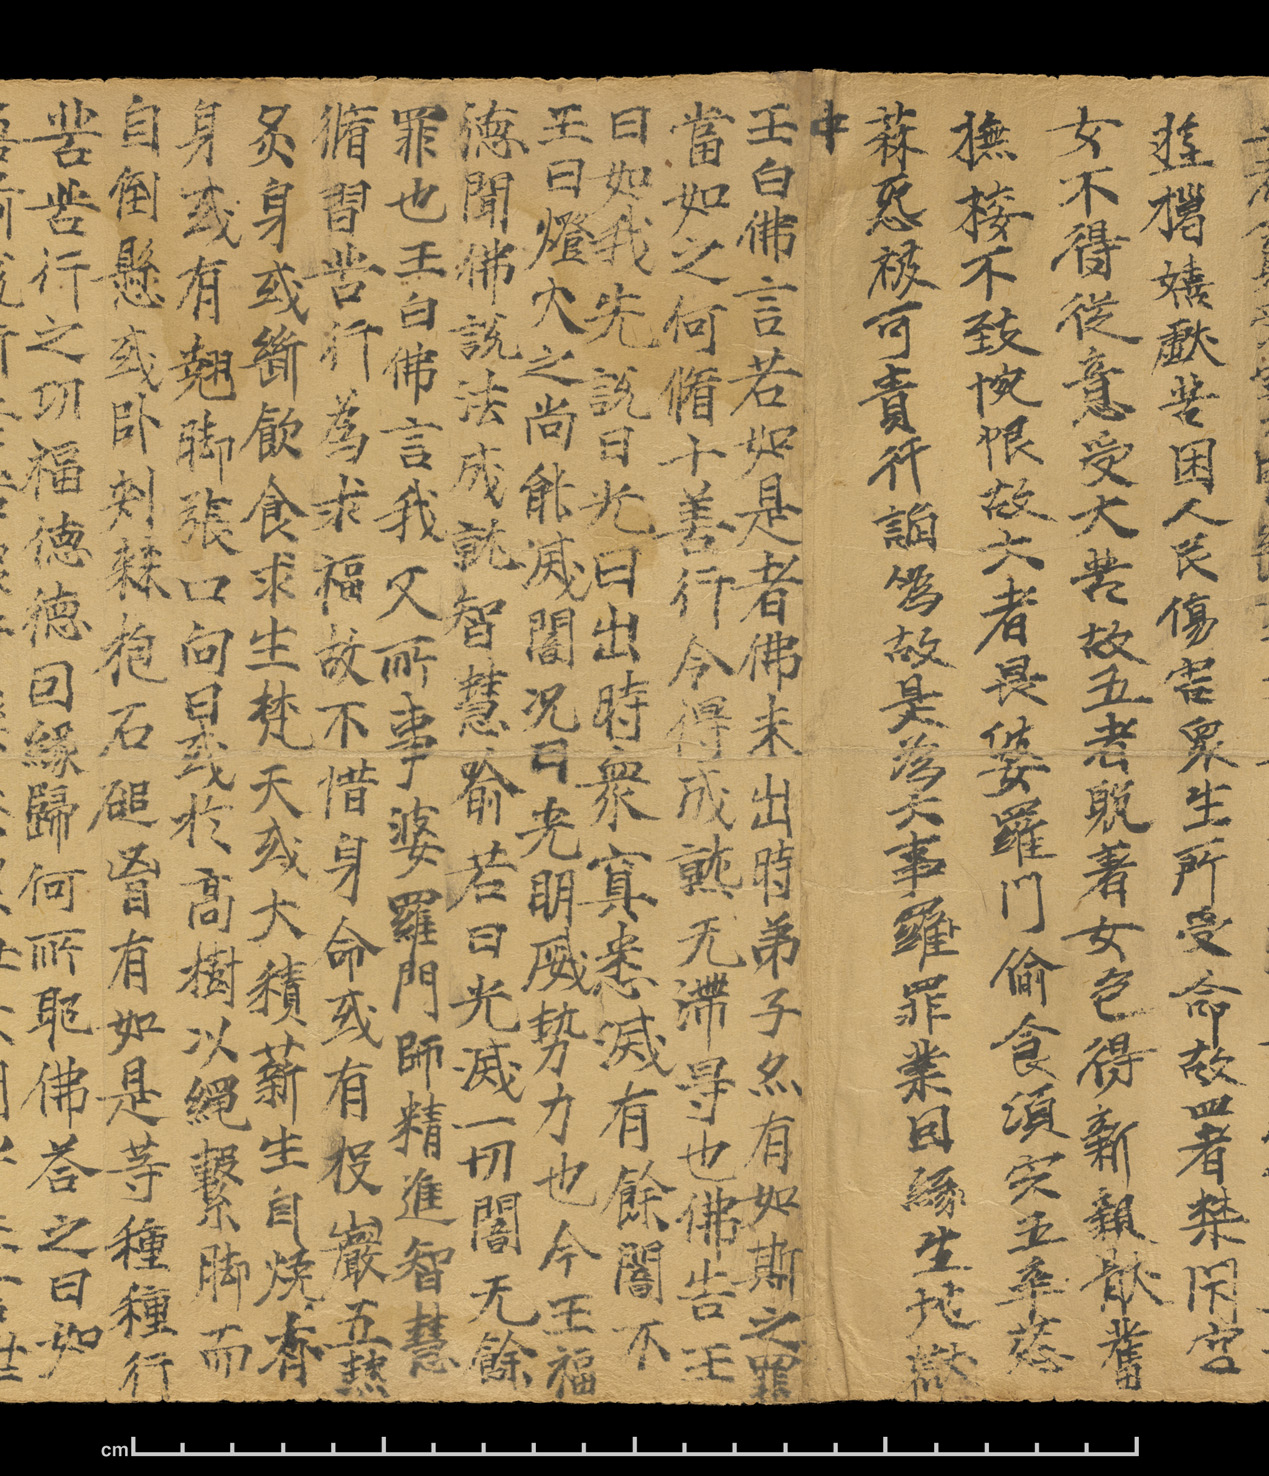 挃擉嬉戲苦困人民傷害眾生所受命故四者禁閉宮
女不得從意受大苦故五者貺著女色得新親猒舊
撫接不致惋恨故六者畏婆羅門偷食湏突五卒慈
蔴惡被可責行諂偽故是為六事羅罪業因緣生地獄
中
王白佛言若如是者佛未出時弟子亦有如斯之罪
當如之何脩十善行令得成就无滯㝵也佛告王
曰如我先說日光日出時眾寘悉滅有餘闇不
王曰燈火之尚能滅闇況日光明威勢力也今王福
德聞佛說法成就智慧喻若日光滅一切闇无餘
罪也王白佛言我父所事婆羅門師精進智慧
脩習苦行為求福故不惜身命或有投巖五熱
炙身或斷飲食求生梵天或大積薪生自燒者
身或有翹脚張口向日或於高樹以繩繫脚而
自倒懸或卧刺棘抱石磓胷有如是等種種行
苦苦行之功福德德回緣歸何所耶佛荅之曰如